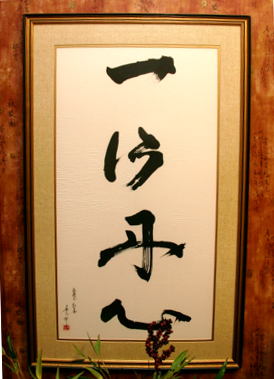 一片丹心